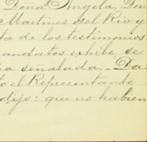 Doña Angela, Don
Martines del Rio y
ta de los testimonios
andatos exhibe, se
ra señalada_Da
to el Representante
dijo: que no habien